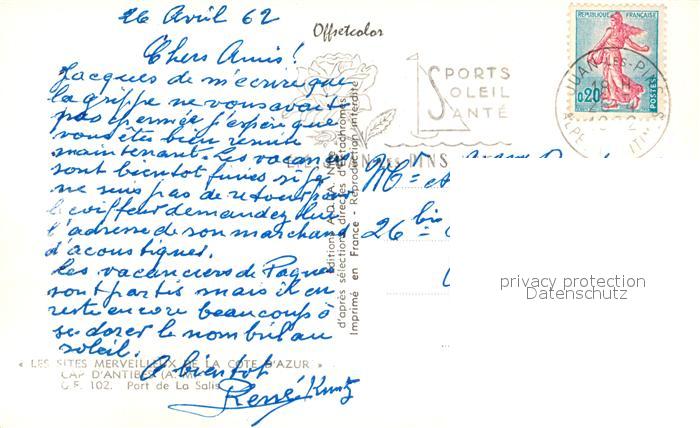 26 Avril 62
Chers Amis!
Jacques de m'écrire que
la grippe ne vous avait
pas épargné j'espère que
vous êtes bien remis
maintenant. Les vacances
sont bientot finies si je
ne suis pas de retour pour
le coiffeur demandez lui
l'adresse de son marchand
d'acoustiques.
Les vacanciers de Paques
sont partis mais il en
reste encore beaucoup à
se dorer le nombril au
soleil.
A bientot
René Kuntz
« LES SITES MERVEILLEUX DE LA COTE D'AZUR »
CAP D'ANTIBES (A.-M.)
C.F. 102. Port de La Salis
Offsetcolor
Editions A.D.I.A. Nice
d'après sélections directes d'Ektachromes
Imprimé en France - Reproduction interdite
SPORTS
SOLEIL
SANTÉ
JUAN LES PINS
RÉPUBLIQUE FRANÇAISE
0,20
POSTES
JUAN-LES-PINS
18 H
Mr
26 bis
privacy protection
Datenschutz